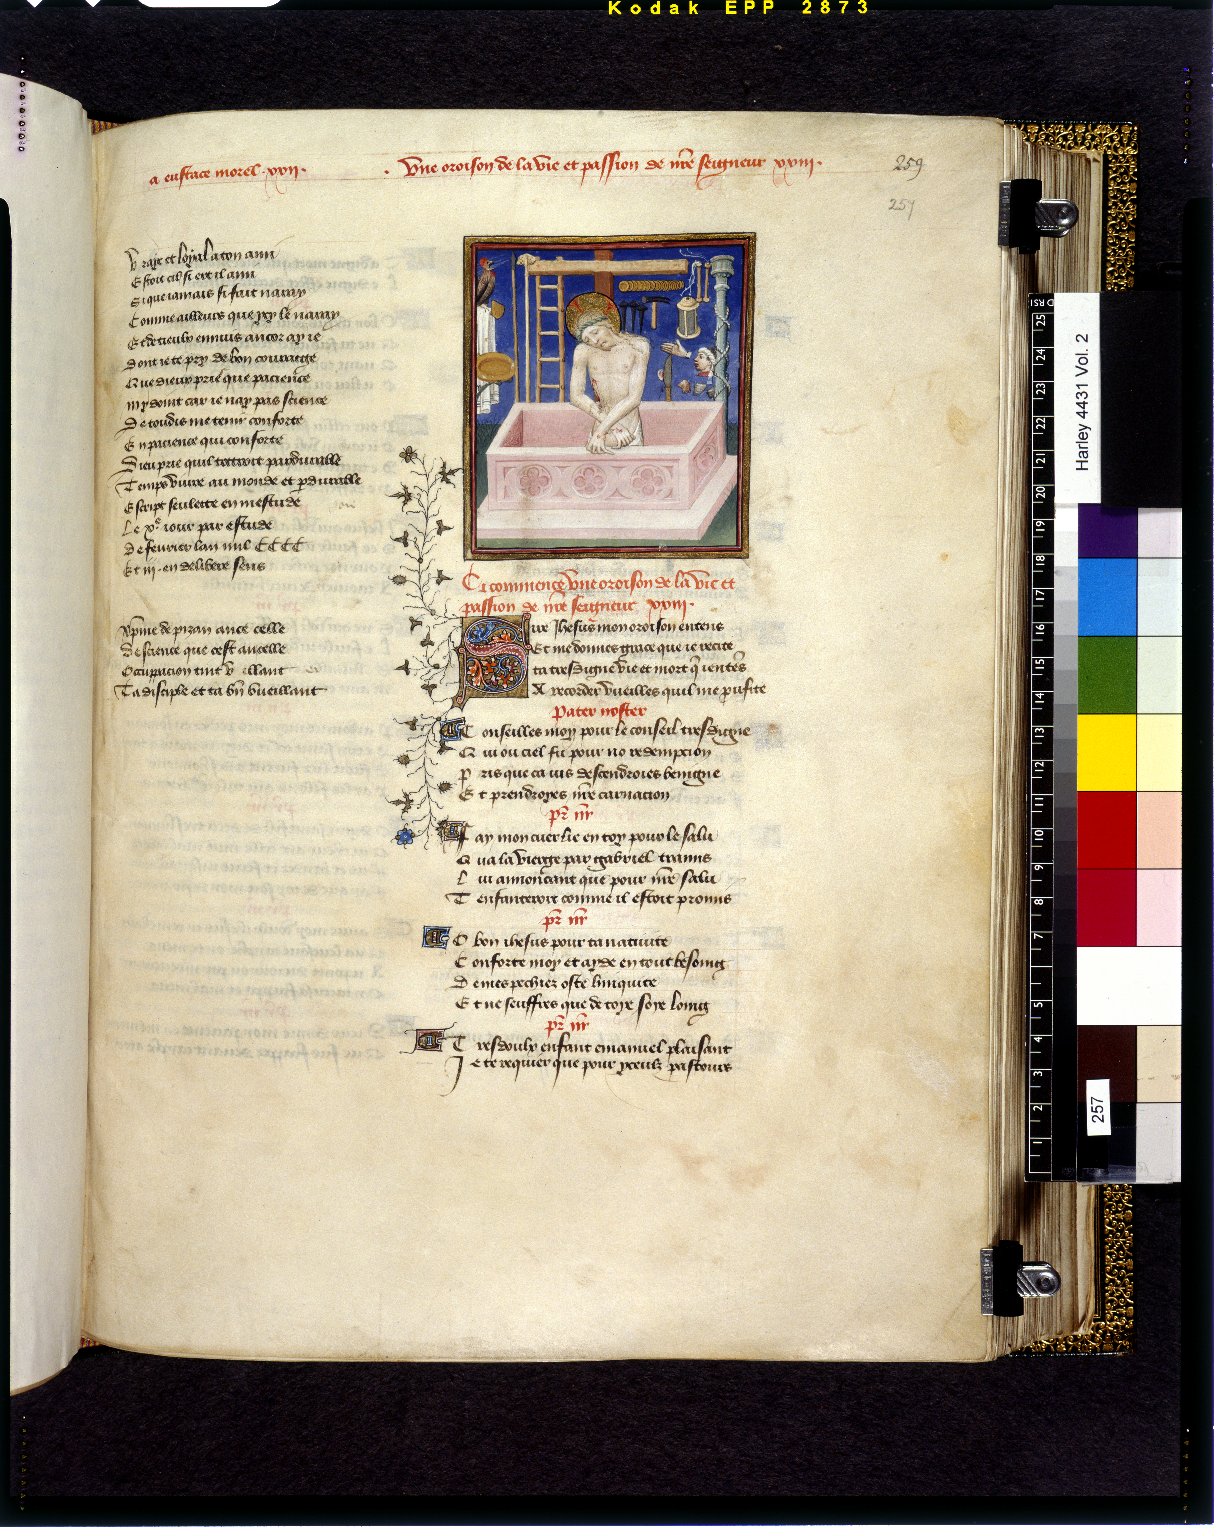 Kodak EPP 2873
a eustace morel .xxii.
. Une oroison de la vie et passion de nre seigneur xxiii.
259
257
Vray et loyal a ton ami
Estoit cil si ere il ami
Si que iamais si fait naray
Comme ailleurs que
Et de ennuis ancor ay ie
Dont ie te pry de bon courage
Que dieux prie que pacience
my doint car ie nay pas science
De toudis me tenir conforte
En pacience qui conforte
Dieu prie quil pardurable
Temps vivre au monde et pdurable
Escript seulette en mestude
Le xe iour par estude
De fevrier lan mil CCCC
Et iij. en delibere sens
Xpine de pizan ance celle
De science que cest ancelle
Occupacion tint veillant
Ta disciple et ta bn vueillant
Ci commence une oroison de la vie et
passion de nre seigneur xxiii.
Sire Ihesus mon oroison entens
Et me donnes grace que ie recite
ta tresdigne vie et mort q ientes
A recorder vueilles quil me pufite
Pater noster
Conseilles moy pour le conseil tresdigne
Qui ou ciel fu pour no redempcion
Pris que ca ius descendroies benigne
Et prendroyes nre carnacion
pr nr
Jay mon cuer lie en toy pour le salu
Qua la vierge par gabriel tramis
Lui anoncant que pour nre salu
Tenfanteroit comme il estoit promis
pr nr
O bon ihesus pour ta nativite
Conforte moy et ayde en tout besoing
De mes pechiez oste liniquite
Et ne seuffres que de toye soye loing
pr nr
Tresdoulx enfant emanuel plaisant
Je te requier que pour yceulx pastours
Harley 4431 Vol. 2
25
24
23
22
21
20
19
18
17
16
15
14
13
12
11
10
9
8
7
5
4
3
2
1
257